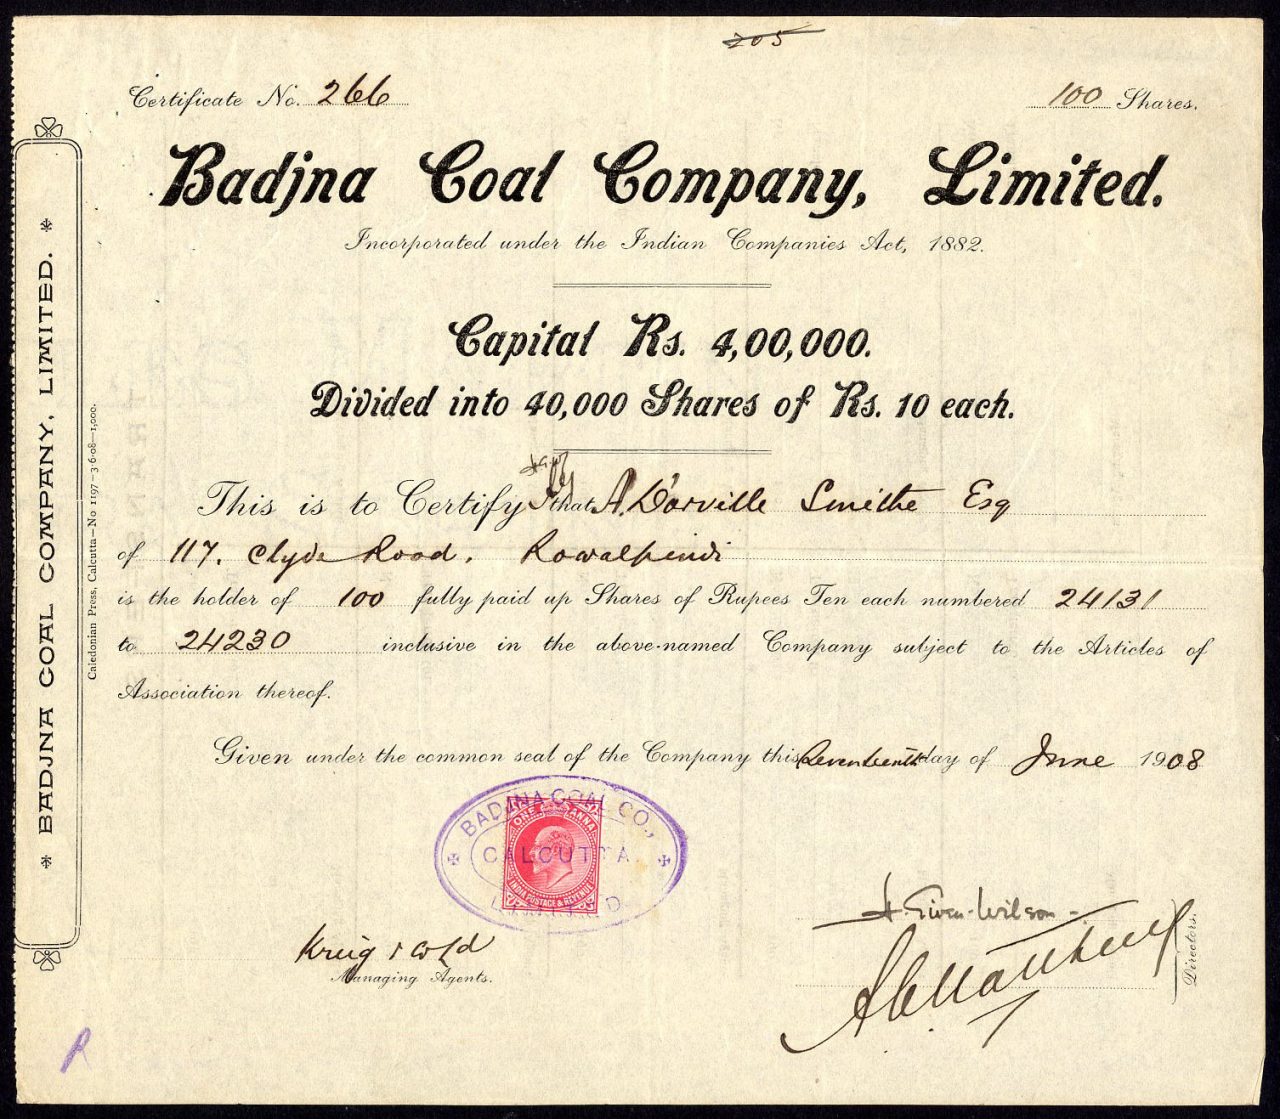 205
Certificate No. 266
100 Shares.
Badjna Coal Company, Limited.
Incorporated under the Indian Companies Act, 1882.
Capital Rs. 4,00,000.
Divided into 40,000 Shares of Rs. 10 each.
This is to Certify that A. D'orville Smithe Esq
of 117. Clyde Road. Rawalpindi
is the holder of 100 fully paid up Shares of Rupees Ten each numbered 24131
to 24230 inclusive in the above-named Company subject to the Articles of
Association thereof.
Given under the common seal of the Company this Seventeenth day of June 1908
BADJNA COAL CO.,
CALCUTTA
ONE ANNA
INDIA POSTAGE & REVENUE
Managing Agents.
Given-Wilson
Directors.
* BADJNA COAL COMPANY, LIMITED. *
Caledonian Press, Calcutta—No 1197—3-6-08—1,000.
R